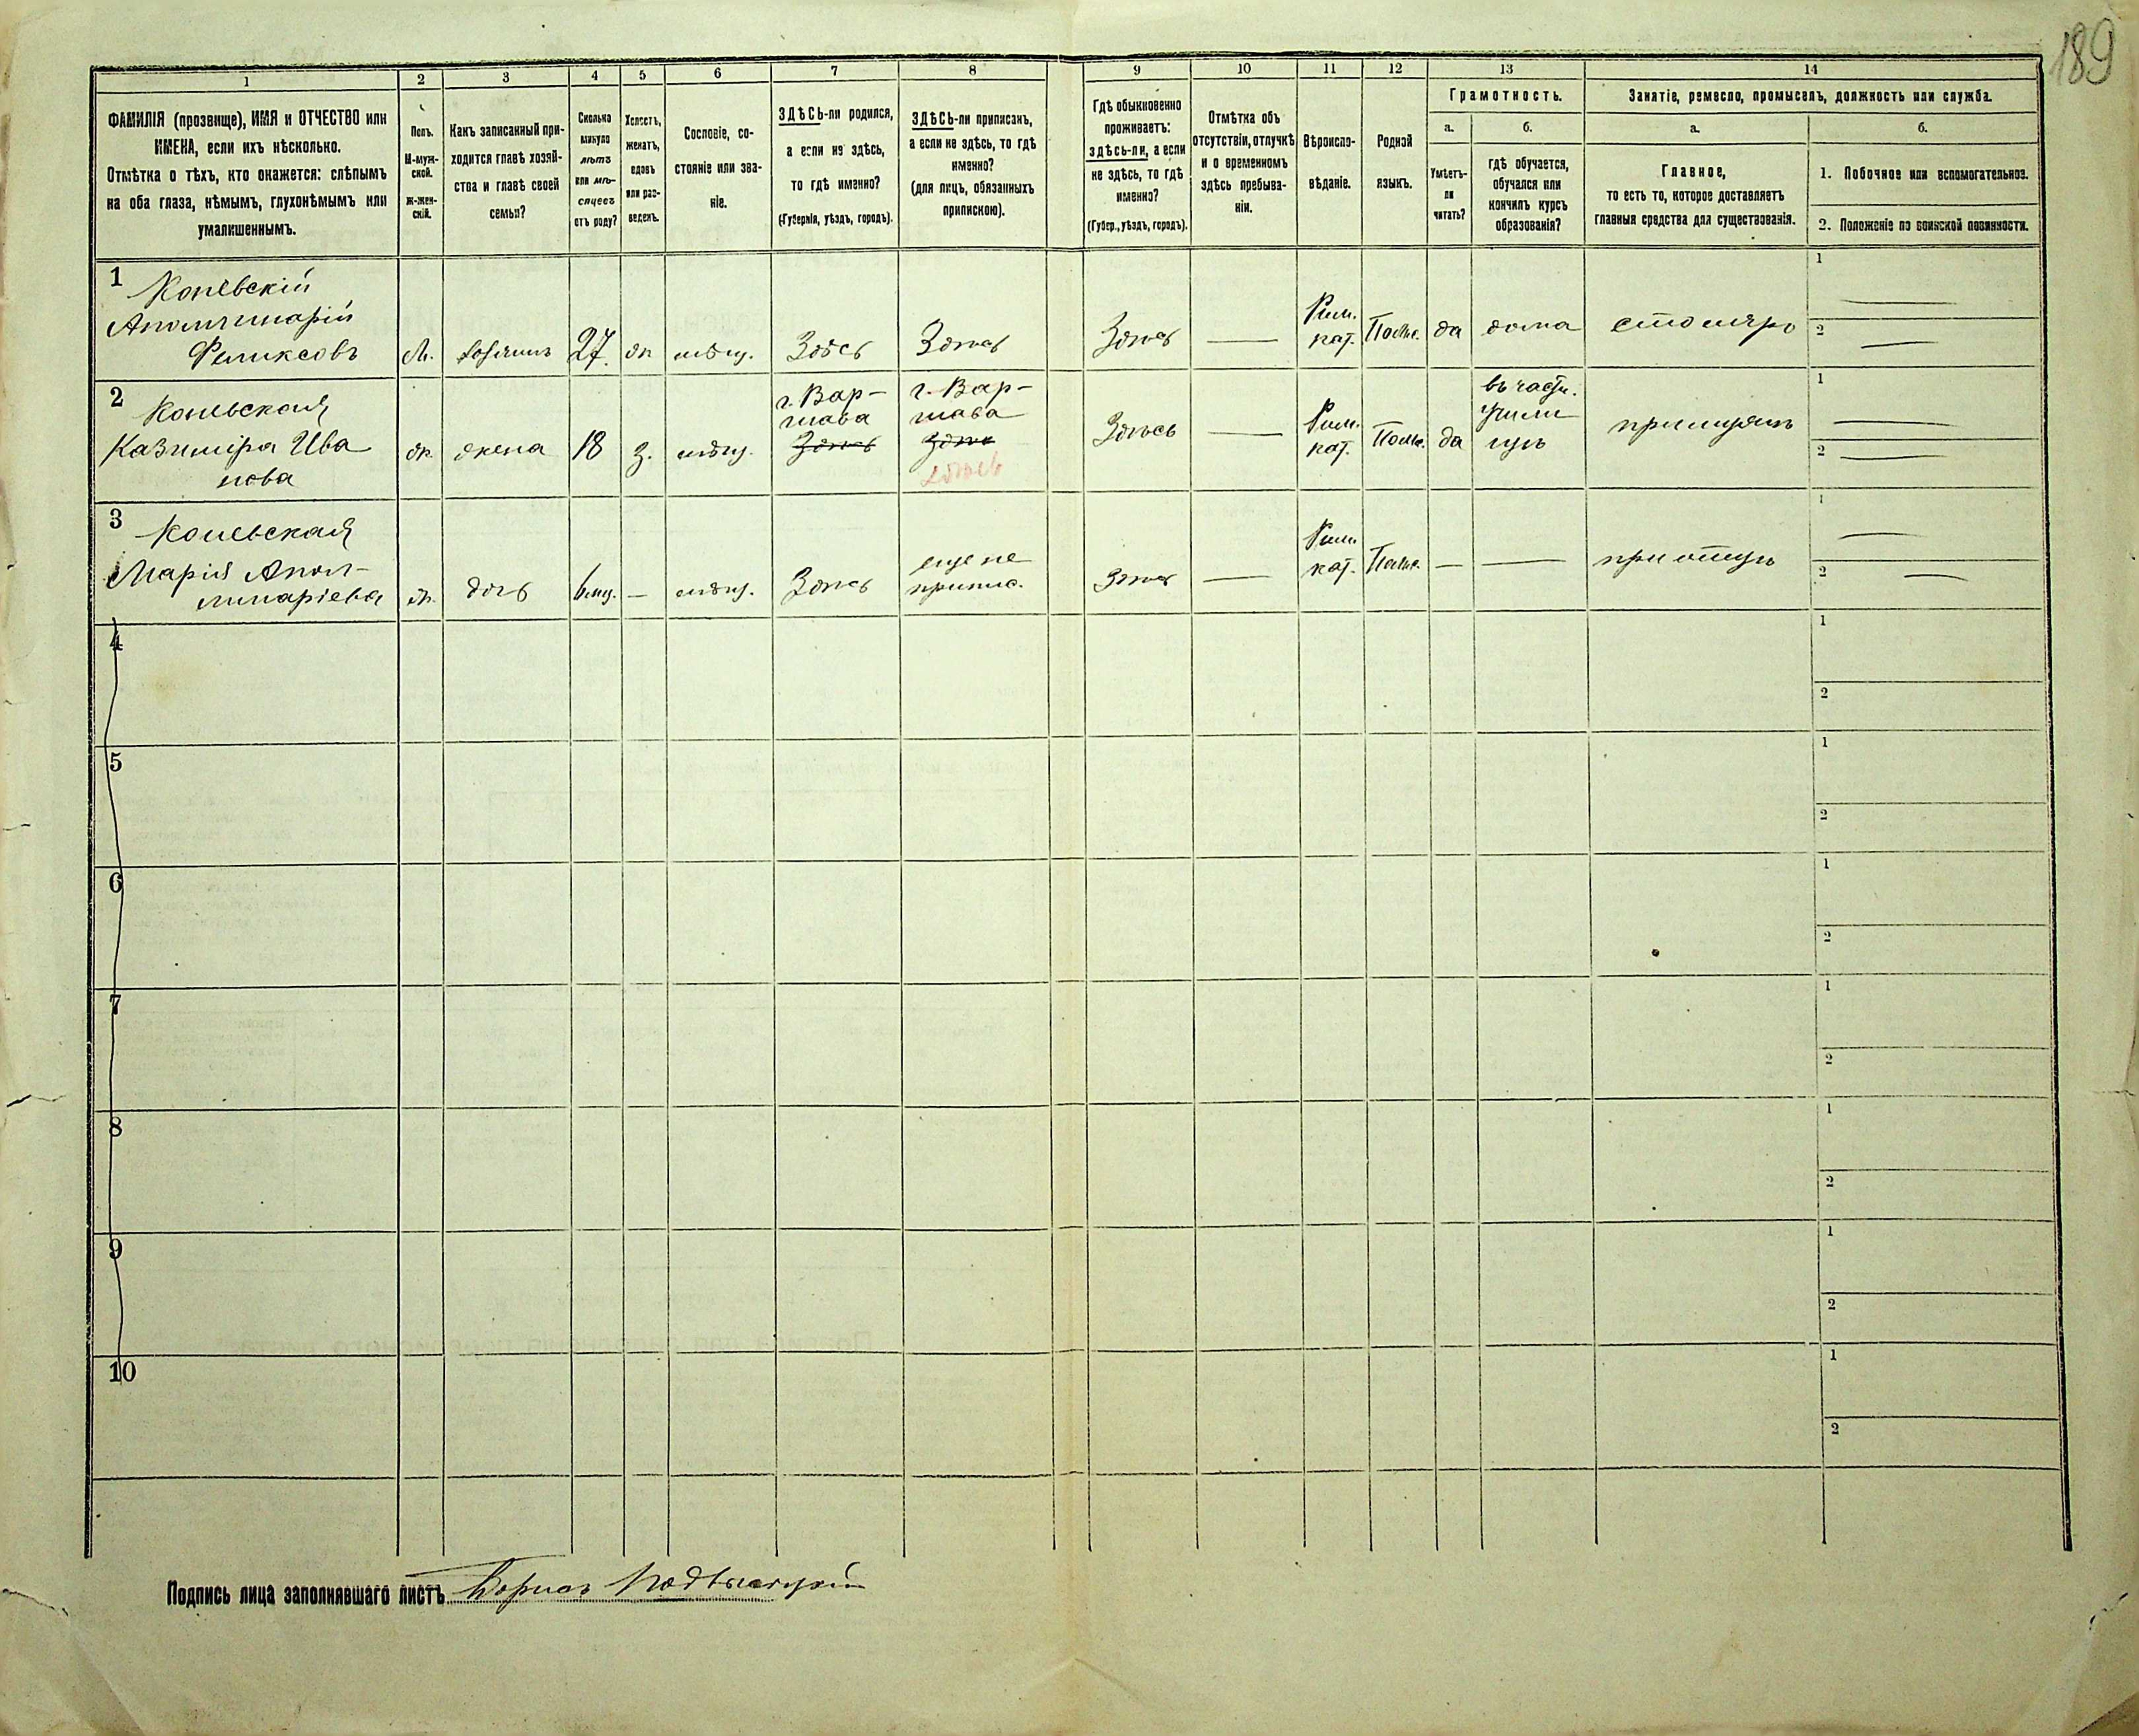 189
1 2 3 4 5 6 7 8 9 10 11 12 13 14
ФАМИЛІЯ (прозвище), ИМЯ и ОТЧЕСТВО или
ИМЕНА, если ихъ нѣсколько.
Отмѣтка о тѣхъ, кто окажется: слѣпымъ
на оба глаза, нѣмымъ, глухонѣмымъ или
умалишеннымъ.
Полъ.
М-муж-
ской.
ж-жен-
скій.
Какъ записанный при-
ходится главѣ хозяй-
ства и главѣ своей
семьи?
Сколько
минуло
лѣтъ
или мѣ-
сяцевъ
отъ роду?
Холостъ,
женатъ,
вдовъ
или раз-
веденъ.
Сословіе, со-
стояніе или зва-
ніе.
ЗДѢСЬ-ли родился,
а если не здѣсь,
то гдѣ именно?
(Губернія, уѣздъ, городъ).
ЗДѢСЬ-ли приписанъ,
а если не здѣсь, то гдѣ
именно?
(для лицъ, обязанныхъ
припискою).
Гдѣ обыкновенно
проживаетъ:
здѣсь-ли, а если
не здѣсь, то гдѣ
именно?
(Губер., уѣздъ, городъ).
Отмѣтка объ
отсутствіи, отлучкѣ
и о временномъ
здѣсь пребыва-
ніи.
Вѣроиспо-
вѣданіе.
Родной
языкъ.
Грамотность.
а.
Умѣетъ-
ли
читать?
б.
гдѣ обучается,
обучался или
кончилъ курсъ
образованія?
Занятіе, ремесло, промыселъ, должность или служба.
а.
Главное,
то есть то, которое доставляетъ
главныя средства для существованія.
б.
1. Побочное или вспомогательное.
2. Положеніе по воинской повинности.
1 Коневскій
Аполлинарій
Феликсовъ
М. хозяинъ 27 ж мѣщ. Здѣсь Здѣсь Здѣсь — Рим. кат. Польс. да дома столяръ
1
2
2 Коневская
Казиміра Ива
нова
ж. жена 18 з. мѣщ.
г. Вар-
шава
Здѣсь
г. Вар-
шава
Здѣсь
здѣсь
Здѣсь — Рим. кат. Польс. да
въ частн.
учили
щѣ
при мужѣ
1
2
3 Коневская
Марія Апол-
линаріева
ж. дочь 6 мц. — мѣщ. Здѣсь
еще не
припис.
Здѣсь — Рим. кат. Польс. — — при отцѣ
1
2
4
1
2
5
1
2
6
1
2
7
1
2
8
1
2
9
1
2
10
1
2
Подпись лица заполнявшаго листъ Борисъ